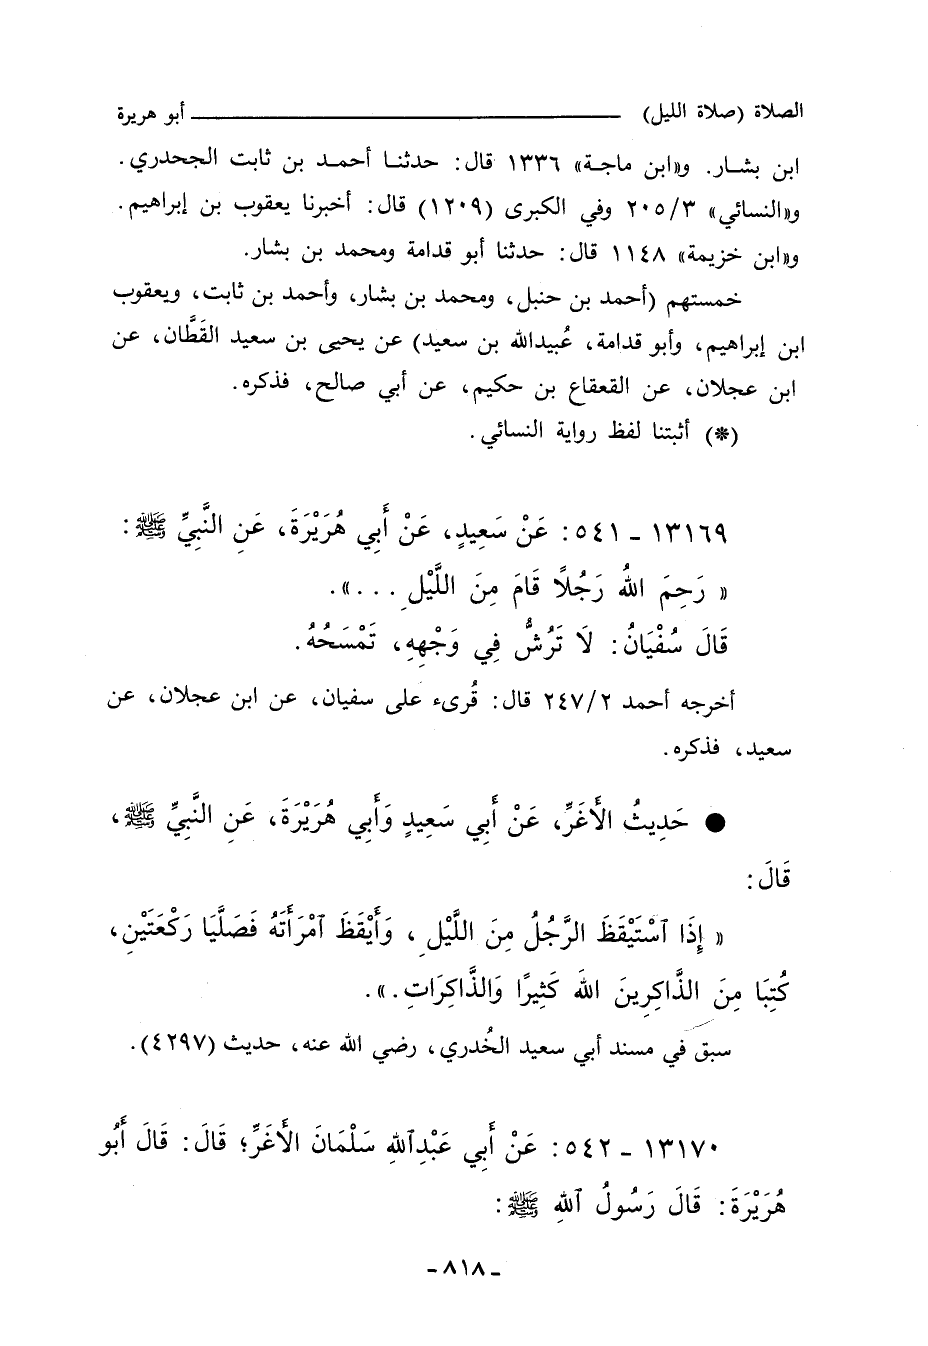 الصلاة (صلاة الليل) ــــــــــــــــــــ أبو هريرة
ابن بشـار. و«ابن ماجـة» ١٣٣٦ قال: حدثنـا أحمـد بن ثابت الجحدري.
و«النسائي» ٢٠٥/٣ وفي الكبرى (١٢٠٩) قال: أخبرنا يعقوب بن إبراهيم.
و«ابن خزيمة» ١١٤٨ قال: حدثنا أبو قدامة ومحمد بن بشار.
خمستهم (أحمد بن حنبل، ومحمد بن بشار، وأحمد بن ثابت، ويعقوب
ابن إبراهيم، وأبو قدامة، عُبيدالله بن سعيد) عن يحيى بن سعيد القَطَّان، عن
ابن عجلان، عن القعقاع بن حكيم، عن أبي صالح، فذكره.
(*) أثبتنا لفظ رواية النسائي.
١٣١٦٩ ـ ٥٤١: عَنْ سَعِيدٍ، عَنْ أَبِي هُرَيْرَةَ، عَنِ النَّبِيِّ ﷺ:
« رَحِمَ اللهُ رَجُلًا قَامَ مِنَ اللَّيْلِ . . .».
قَالَ سُفْيَانُ: لَا تَرُشُّ فِي وَجْهِهِ، تَمْسَحُهُ.
أخرجه أحمد ٢٤٧/٢ قال: قُرىء على سفيان، عن ابن عجلان، عن
سعيد، فذكره.
● حَدِيثُ الأَغَرِّ، عَنْ أَبِي سَعِيدٍ وَأَبِي هُرَيْرَةَ، عَنِ النَّبِيِّ ﷺ،
قَالَ:
« إِذَا ٱسْتَيْقَظَ الرَّجُلُ مِنَ اللَّيْلِ، وَأَيْقَظَ ٱمْرَأَتَهُ فَصَلَّيَا رَكْعَتَيْنِ،
كُتِبَا مِنَ الذَّاكِرِينَ اللهَ كَثِيرًا وَالذَّاكِرَاتِ.».
سبق في مسند أبي سعيد الخُدري، رضي الله عنه، حديث (٤٢٩٧).
١٣١٧٠ ـ ٥٤٢: عَنْ أَبِي عَبْدِٱللهِ سَلْمَانَ الأَغَرِّ؛ قَالَ: قَالَ أَبُو
هُرَيْرَةَ: قَالَ رَسُولُ ٱللهِ ﷺ:
ـ ٨١٨ ـ